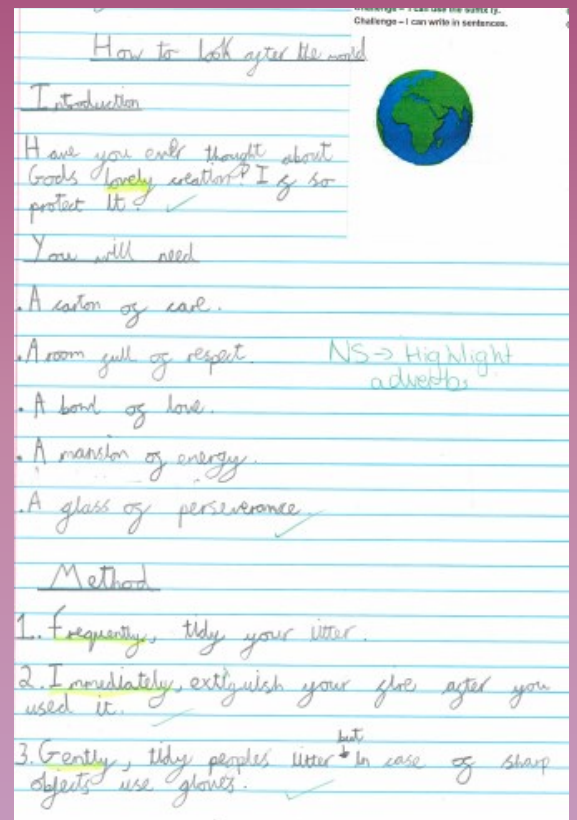 Challenge – I can use the suffix ly.
Challenge – I can write in sentences.
How to look after the world
Introduction
Have you ever thought about
Gods lovely creation? If so
protect it!
You will need
. A carton of care.
. A room full of respect.
NS → Highlight
adverbs
. A bowl of love.
. A mansion of energy.
. A glass of perseverance.
Method
1. Frequently, tidy your litter.
2. Immediately, extiguish your fire after you
used it.
but
3. Gently, tidy peoples litter in case of sharp
objects use gloves.